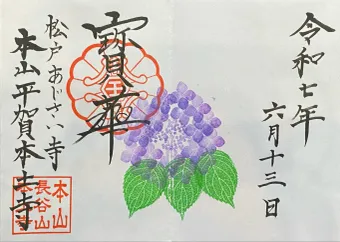 令和七年
六月十三日
寳華
松戸あじさい寺
本山平賀本土寺
本山
長谷山
本土寺